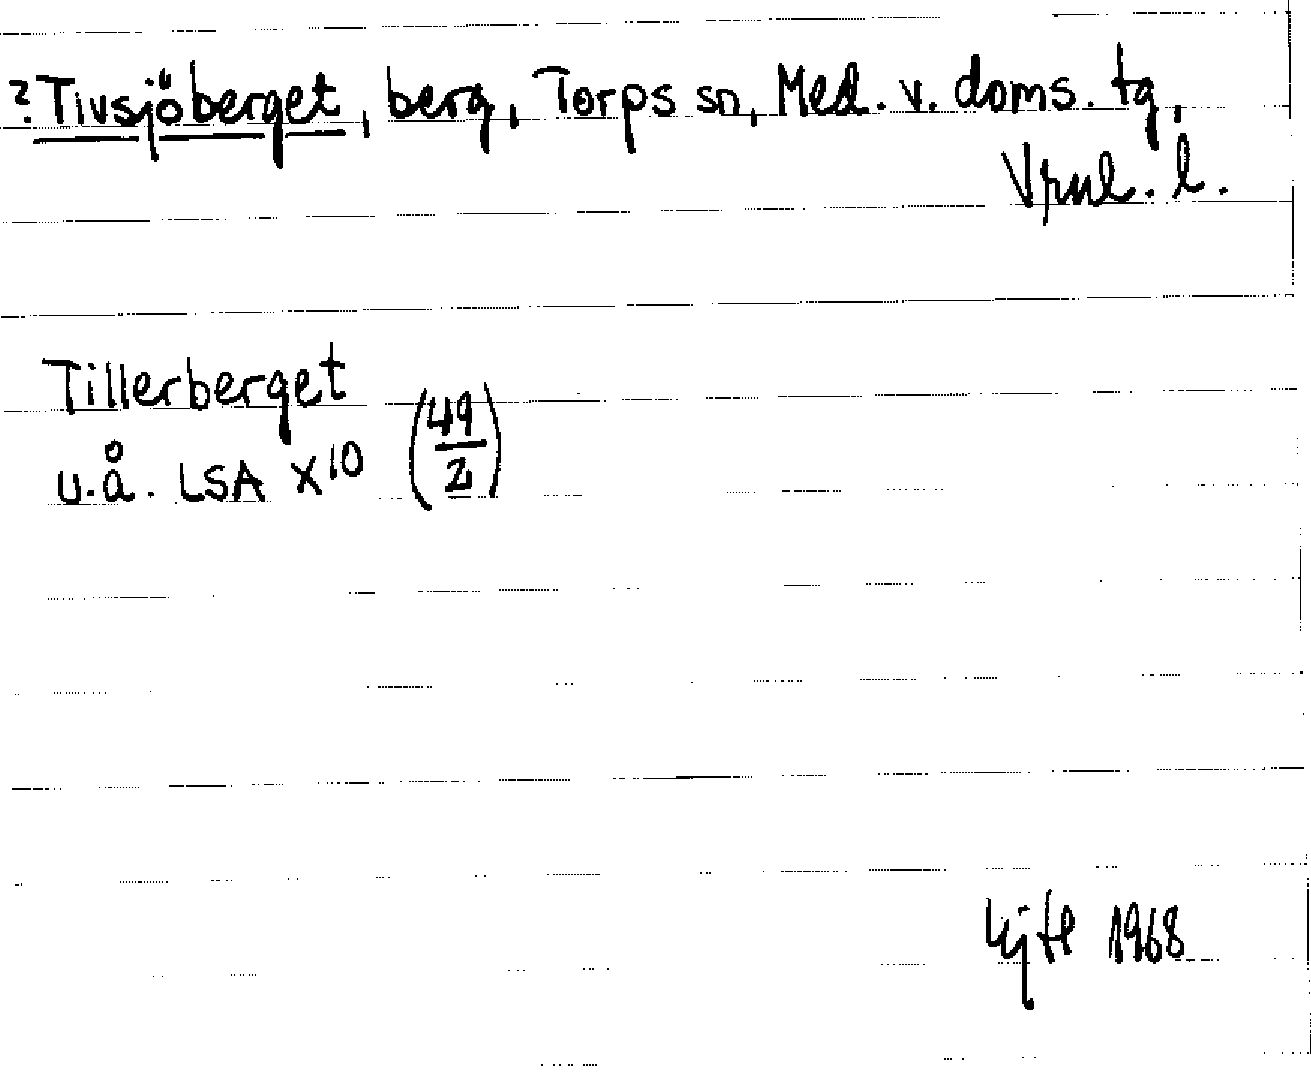 ? Tivsjöberget, berg, Torps sn, Med. v. doms. tg,
Vrnl. l.
Tillerberget
u.å. LSA X10 (49/2)
1968